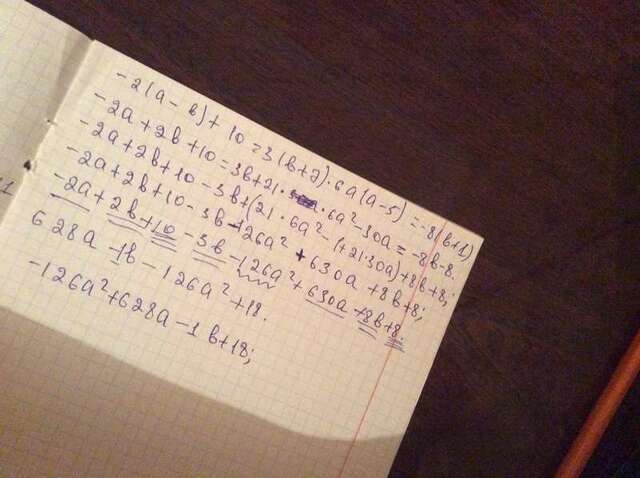 -2(a-b)+10=3(b+7)·6a(a-5)=-8(b+1)
-2a+2b+10=3b+21·6a²-30a=-8b-8
-2a+2b+10-3b+(21·6a²-(+21·30a)+8b+8;
-2a+2b+10-3b-126a²+630a+8b+8;
-2a+2b+10-3b-126a²+630a+8b+8.
628a-1b-126a²+18.
-126a²+628a-1b+18;